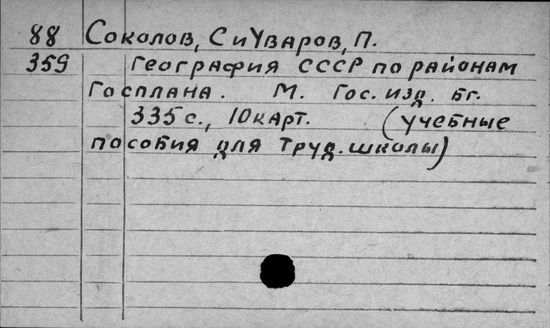 88 Соколов, С и Уваров, П.
359 География СССР по районам
Госплана. М. Гос. изд. бг.
335 с., 10 карт. (учебные
пособия для Труд. школы)